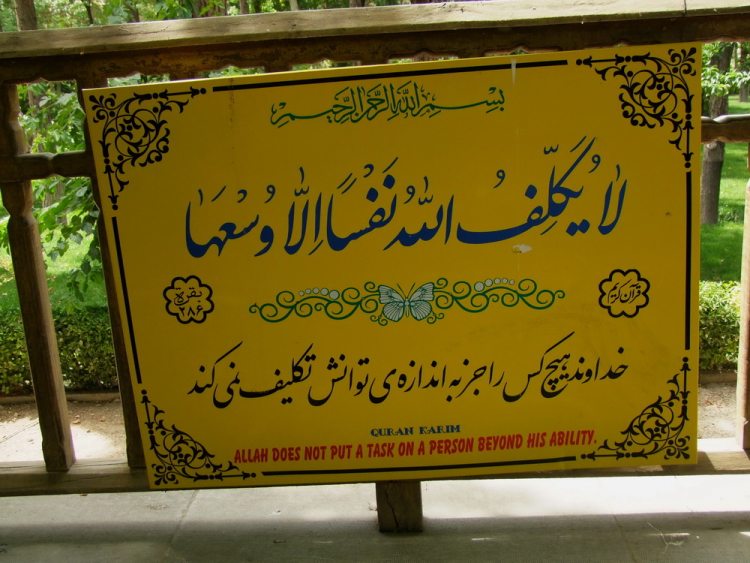 بسم الله الرحمن الرحيم
لا يُكَلِّفُ اللهُ نَفْسًا اِلّا وُسْعَهَا
قرآن کریم
بقره
۲۸۶
خداوند هیچ کس را جز به اندازه ی توانش تکلیف نمی کند
QURAN KARIM
ALLAH DOES NOT PUT A TASK ON A PERSON BEYOND HIS ABILITY.